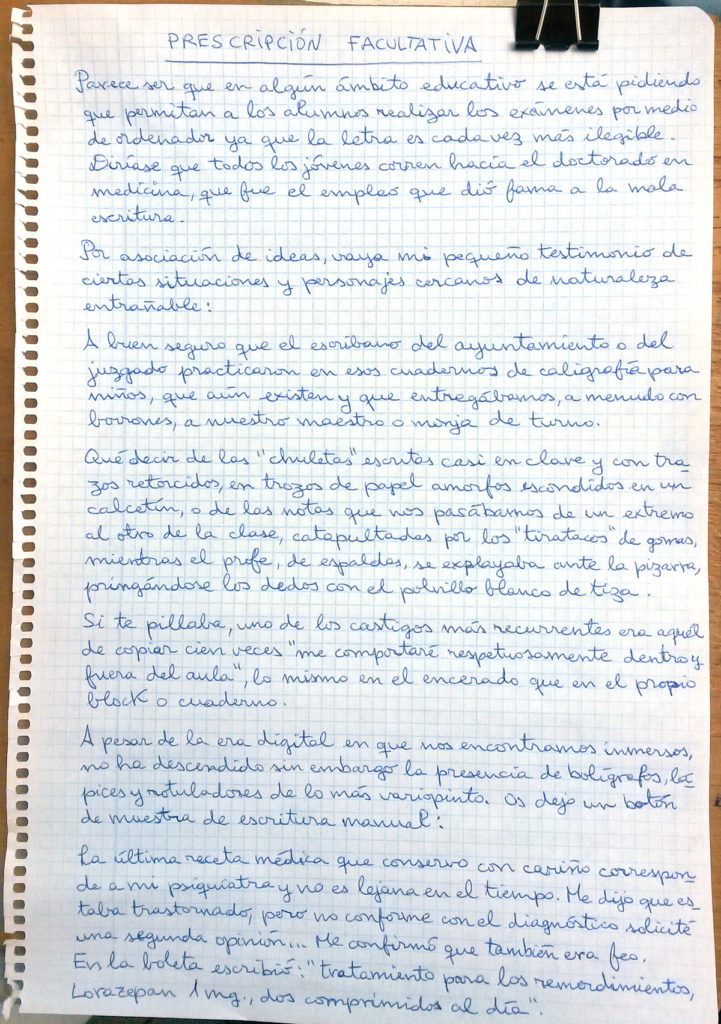 PRESCRIPCIÓN FACULTATIVA
Parece ser que en algún ámbito educativo se está pidiendo
que permitan a los alumnos realizar los exámenes por medio
de ordenador ya que la letra es cada vez más ilegible.
Diríase que todos los jóvenes corren hacia el doctorado en
medicina, que fue el empleo que dió fama a la mala
escritura.
Por asociación de ideas, vaya mi pequeño testimonio de
ciertas situaciones y personajes cercanos de naturaleza
entrañable:
A buen seguro que el escribano del ayuntamiento o del
juzgado practicaron en esos cuadernos de caligrafía para
niños, que aún existen y que entregábamos, a menudo con
borrones, a nuestro maestro o monja de turno.
Qué decir de las "chuletas" escritas casi en clave y con tra-
zos retorcidos, en trozos de papel amorfos escondidos en un
calcetín, o de las notas que nos pasábamos de un extremo
al otro de la clase, catapultadas por los "tiratacos" de gomas,
mientras el profe, de espaldas, se explayaba ante la pizarra,
pringándose los dedos con el polvillo blanco de tiza.
Si te pillaba, uno de los castigos más recurrentes era aquél
de copiar cien veces "me comportaré respetuosamente dentro y
fuera del aula", lo mismo en el encerado que en el propio
block o cuaderno.
A pesar de la era digital en que nos encontramos inmersos,
no ha descendido sin embargo la presencia de bolígrafos, lá-
pices y rotuladores de lo más variopinto. Os dejo un botón
de muestra de escritura manual:
La última receta médica que conservo con cariño correspon-
de a mi psiquiatra y no es lejana en el tiempo. Me dijo que es-
taba trastornado, pero no conforme con el diagnóstico solicité
una segunda opinión... Me confirmó que también era feo.
En la boleta escribió: "tratamiento para los remordimientos,
Lorazepan 1 mg., dos comprimidos al día".